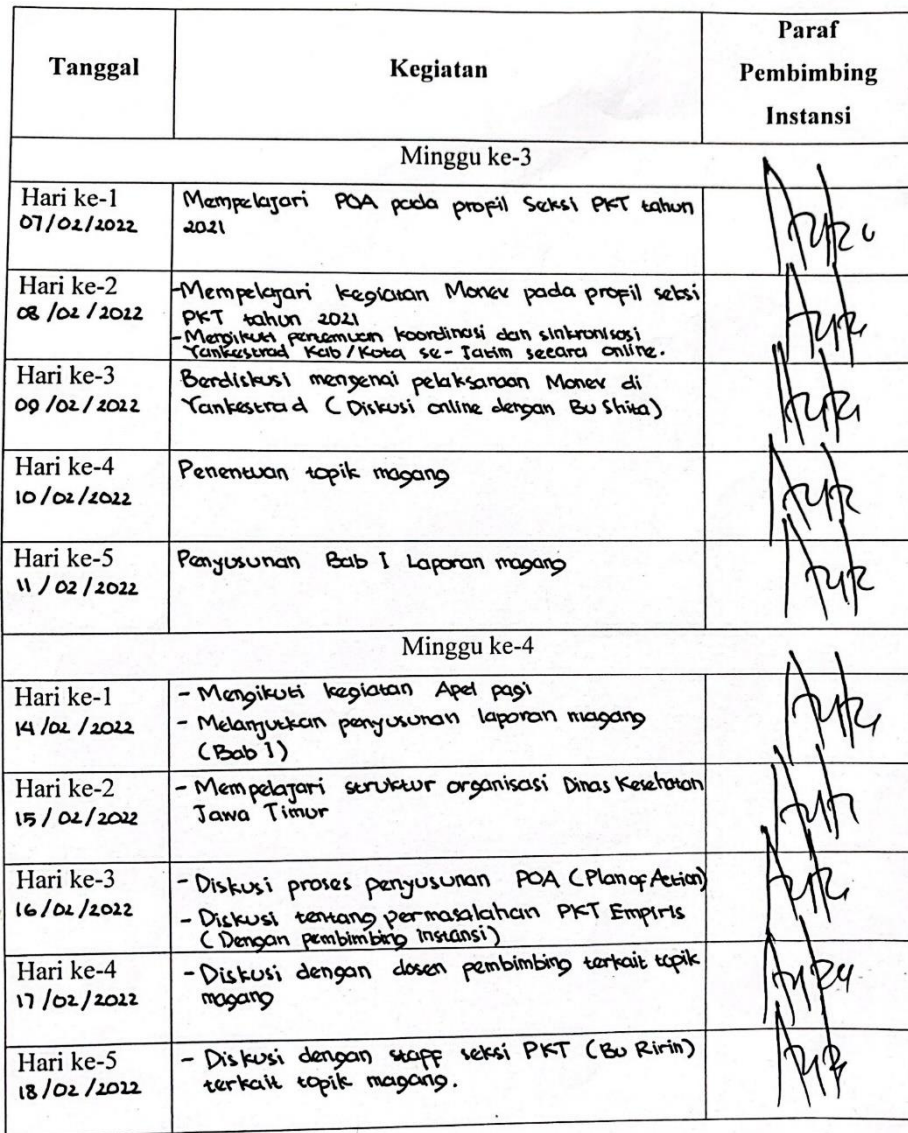 Tanggal
Kegiatan
Paraf
Pembimbing
Instansi
Minggu ke-3
Hari ke-1
07/02/2022
Mempelajari POA pada profil Seksi PKT tahun
2021
Hari ke-2
08/02/2022
-Mempelajari kegiatan Monev pada profil seksi
PKT tahun 2021
-Mengikuti pertemuan koordinasi dan sinkronisasi
Yankestrad Kab/Kota se-Jatim secara online.
Hari ke-3
09/02/2022
Berdiskusi mengenai pelaksanaan Monev di
Yankestrad (Diskusi online dengan Bu Shita)
Hari ke-4
10/02/2022
Penentuan topik magang
Hari ke-5
11/02/2022
Penyusunan Bab I Laporan magang
Minggu ke-4
Hari ke-1
14/02/2022
- Mengikuti kegiatan Apel pagi
- Melanjutkan penyusunan laporan magang
(Bab I)
Hari ke-2
15/02/2022
- Mempelajari struktur organisasi Dinas Kesehatan
Jawa Timur
Hari ke-3
16/02/2022
- Diskusi proses penyusunan POA (Plan of Action)
- Diskusi tentang permasalahan PKT Empiris
(Dengan pembimbing instansi)
Hari ke-4
17/02/2022
- Diskusi dengan dosen pembimbing terkait topik
magang
Hari ke-5
18/02/2022
- Diskusi dengan staff seksi PKT (Bu Ririn)
terkait topik magang.